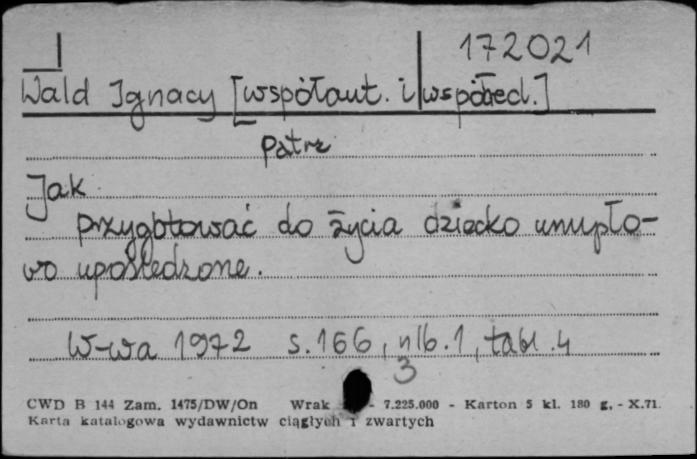 172021
Wald Ignacy [współaut. i współred.]
patrz
Jak
przygotować do życia dziecko umysło-
wo upośledzone.
W-wa 1972 s. 166, nlb. 1, tabl. 4
3
CWD B 144 Zam. 1475/DW/On Wrak - 7.225.000 - Karton 5 kl. 180 g. - X.71.
Karta katalogowa wydawnictw ciągłych i zwartych